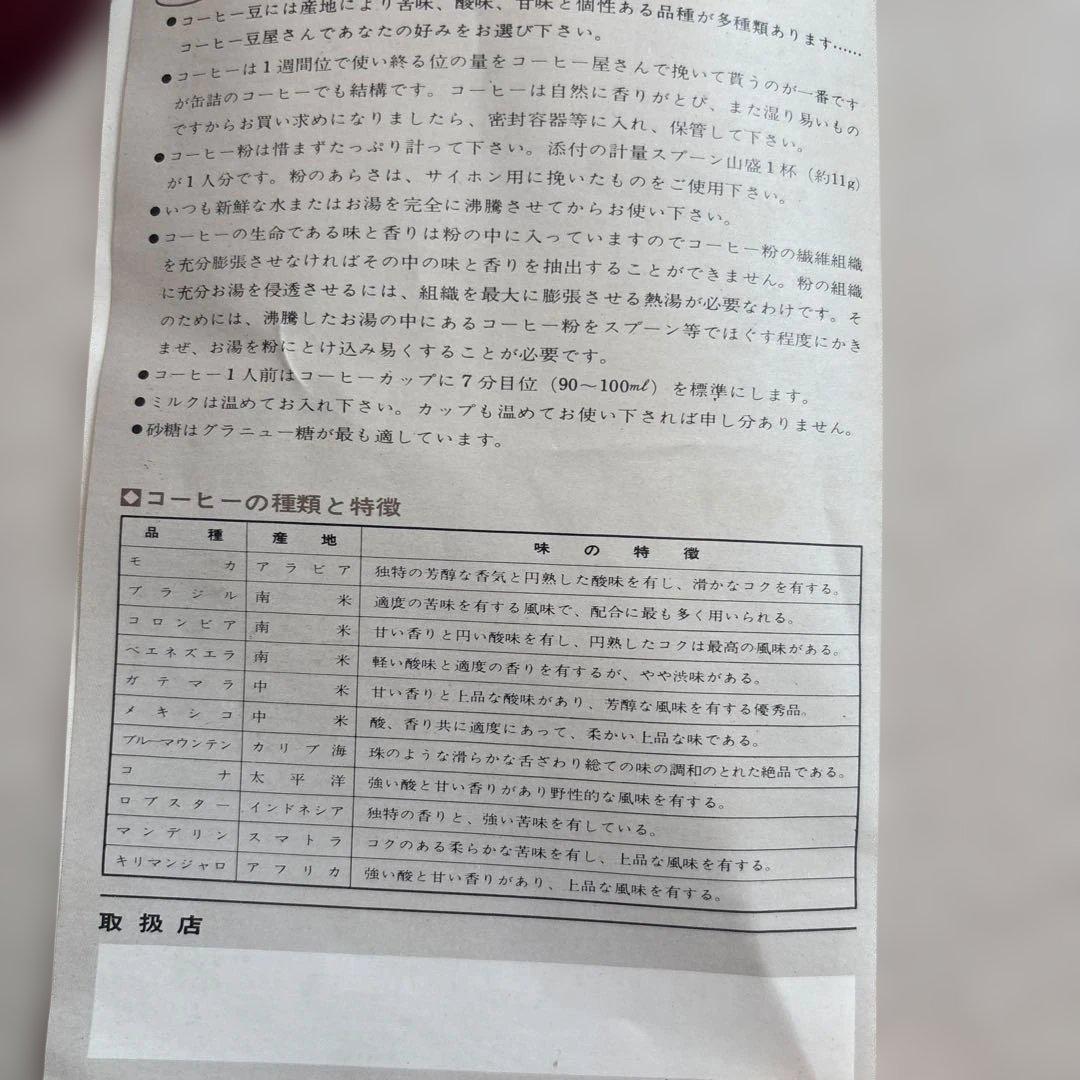 ●コーヒー豆には産地により苦味、酸味、甘味と個性ある品種が多種類あります……
コーヒー豆屋さんであなたの好みをお選び下さい。
●コーヒーは1週間位で使い終る位の量をコーヒー屋さんで挽いて貰うのが一番です
が缶詰のコーヒーでも結構です。コーヒーは自然に香りがとび、また湿り易いもの
ですからお買い求めになりましたら、密封容器等に入れ、保管して下さい。
●コーヒー粉は惜まずたっぷり計って下さい。添付の計量スプーン山盛1杯（約11g）
が1人分です。粉のあらさは、サイホン用に挽いたものをご使用下さい。
●いつも新鮮な水またはお湯を完全に沸騰させてからお使い下さい。
●コーヒーの生命である味と香りは粉の中に入っていますのでコーヒー粉の繊維組織
を充分膨張させなければその中の味と香りを抽出することができません。粉の組織
に充分お湯を侵透させるには、組織を最大に膨張させる熱湯が必要なわけです。そ
のためには、沸騰したお湯の中にあるコーヒー粉をスプーン等でほぐす程度にかき
まぜ、お湯を粉にとけ込み易くすることが必要です。
●コーヒー1人前はコーヒーカップに7分目位（90〜100㎖）を標準にします。
●ミルクは温めてお入れ下さい。カップも温めてお使い下されば申し分ありません。
●砂糖はグラニュー糖が最も適しています。
コーヒーの種類と特徴
品種 産地 味の特徴
モカ アラビア 独特の芳醇な香気と円熟した酸味を有し、滑かなコクを有する。
ブラジル 南米 適度の苦味を有する風味で、配合に最も多く用いられる。
コロンビア 南米 甘い香りと円い酸味を有し、円熟したコクは最高の風味がある。
ベエネズエラ 南米 軽い酸味と適度の香りを有するが、やや渋味がある。
ガテマラ 中米 甘い香りと上品な酸味があり、芳醇な風味を有する優秀品。
メキシコ 中米 酸、香り共に適度にあって、柔かい上品な味である。
ブルーマウンテン カリブ海 珠のような滑らかな舌ざわり総ての味の調和のとれた絶品である。
コナ 太平洋 強い酸と甘い香りがあり野性的な風味を有する。
ロブスター インドネシア 独特の香りと、強い苦味を有している。
マンデリン スマトラ コクのある柔らかな苦味を有し、上品な風味を有する。
キリマンジャロ アフリカ 強い酸と甘い香りがあり、上品な風味を有する。
取扱店